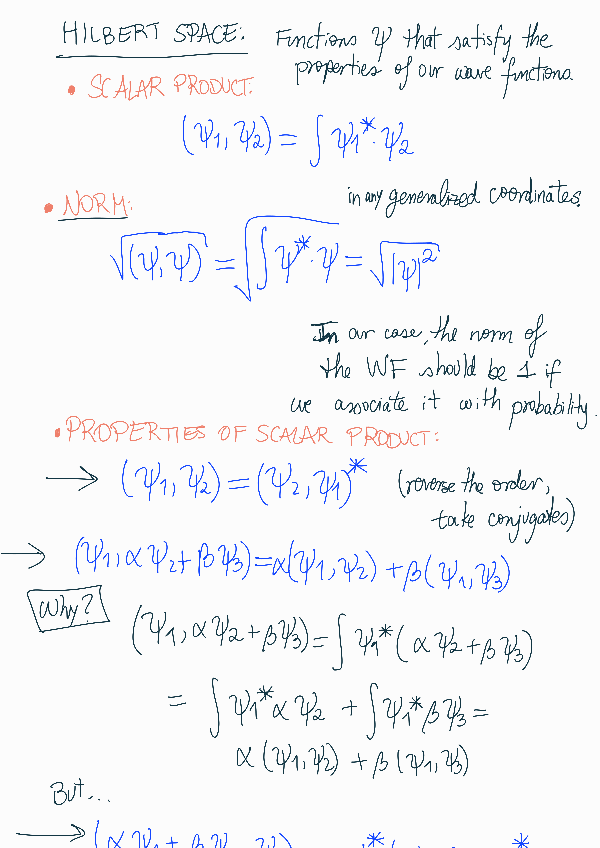 HILBERT SPACE: Functions Ψ that satisfy the
properties of our wave functions.
• SCALAR PRODUCT:
(Ψ1, Ψ2) = ∫ Ψ1* · Ψ2
in any generalized coordinates.
• NORM:
√(Ψ, Ψ) = √∫ Ψ* · Ψ = √|Ψ|²
In our case, the norm of
the WF should be 1 if
we associate it with probability.
• PROPERTIES OF SCALAR PRODUCT:
→ (Ψ1, Ψ2) = (Ψ2, Ψ1)* (reverse the order,
take conjugates)
→ (Ψ1, αΨ2 + βΨ3) = α(Ψ1, Ψ2) + β(Ψ1, Ψ3)
Why?
(Ψ1, αΨ2 + βΨ3) = ∫ Ψ1* (αΨ2 + βΨ3)
= ∫ Ψ1* αΨ2 + ∫ Ψ1* βΨ3 =
α(Ψ1, Ψ2) + β(Ψ1, Ψ3)
But...